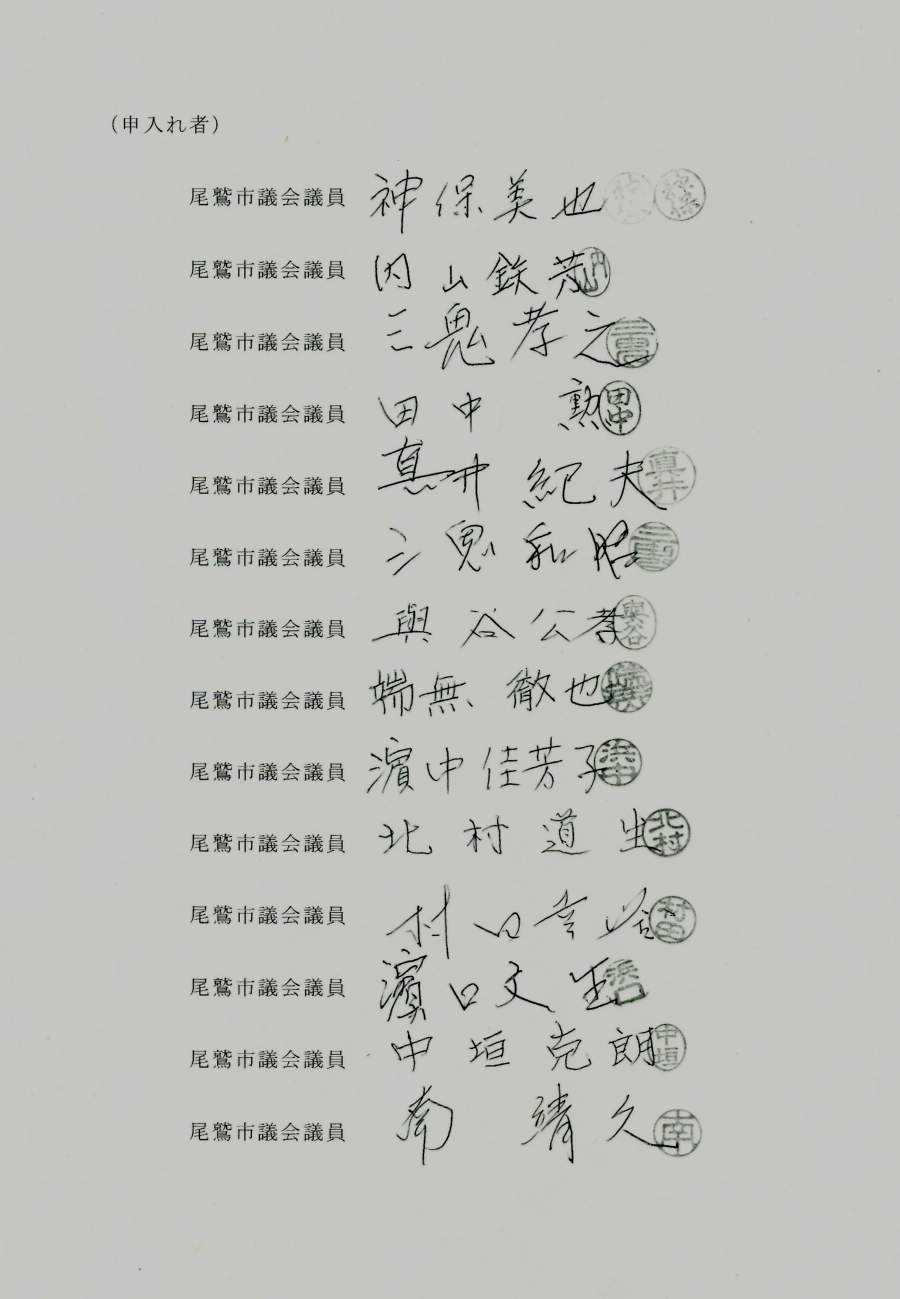 (申入れ者)
尾鷲市議会議員 神保美也
尾鷲市議会議員 内山鉄芳 内山
尾鷲市議会議員 三鬼孝之 三鬼
尾鷲市議会議員 田中 勲 田中
尾鷲市議会議員 真井紀夫 真井
尾鷲市議会議員 三鬼和昭 三鬼
尾鷲市議会議員 與谷公孝 與谷
尾鷲市議会議員 端無徹也 端無
尾鷲市議会議員 濵中佳芳子 浜中
尾鷲市議会議員 北村道生 北村
尾鷲市議会議員 村田幸 村田
尾鷲市議会議員 濵口文生 浜口
尾鷲市議会議員 中垣克朗 中垣
尾鷲市議会議員 南 靖久 南